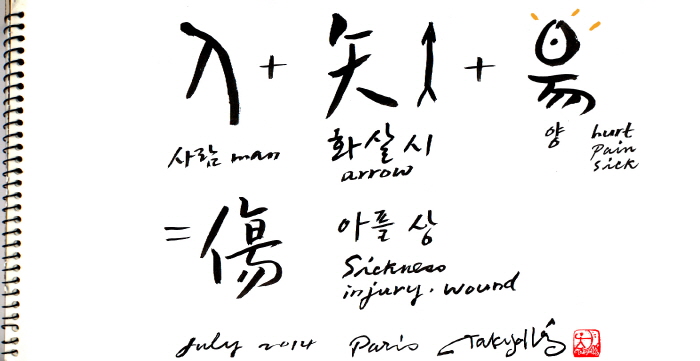 人 + 矢 + 昜
사람 man
화살 시
arrow
양 hurt
Pain
sick
= 傷
아플 상
Sickness
injury. wound
July 2014 Paris